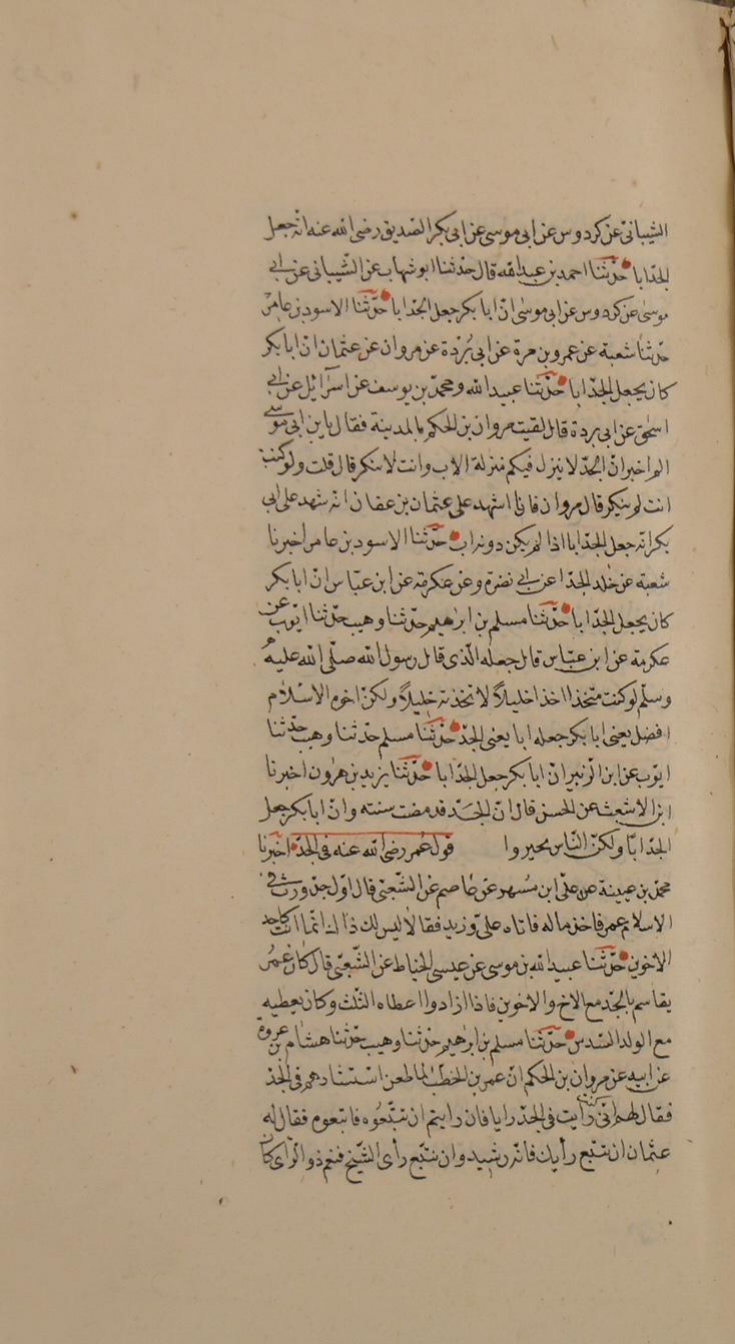 الشيبانى عن كردوس عن ابى موسى عن ابى بكر الصديق رضى الله عنه انه جعل
الجد ابا حدثنا احمد بن عبد الله قال حدثنا ابو شهاب عن الشيبانى عن ابى
موسى عن كردوس عن ابى موسى ان ابا بكر جعل الجد ابا حدثنا الاسود بن عامر
حدثنا شعبة عن عمرو بن مرة عن ابى بردة عن مروان عن عثمان ان ابا بكر
كان يجعل الجد ابا حدثنا عبيد الله ومحمد بن يوسف عن اسرائيل عن ابى
اسحق عن ابى بردة قال لقيت مروان بن الحكم بالمدينة فقال يا بن ابى موسى
الم اخبر ان الجد لا ينزل فيكم منزلة الاب وانت لا تنكر قال قلت ولو كنت
انت لم تنكر قال مروان فانا اشهد على عثمان بن عفان انه شهد على ابى
بكر انه جعل الجد ابا اذا لم يكن دونه اب حدثنا الاسود بن عامر اخبرنا
شعبة عن خلد الحذا عن ابى نضرة وعن عكرمة عن ابن عباس ان ابا بكر
كان يجعل الجد ابا حدثنا مسلم بن ابرهيم حدثنا وهيب حدثنا ايوب عن
عكرمة عن ابن عباس قال جعله الذى قال رسول الله صلى الله عليه
وسلم لو كنت متخذا احدا خليلا لاتخذته خليلا ولكن اخوة الاسلام
افضل يعنى ابا بكر جعله ابا يعنى الجد حدثنا مسلم حدثنا وهيب حدثنا
ايوب عن ابن الزبير ان ابا بكر جعل الجد ابا حدثنا يزيد بن هرون اخبرنا
ابن الاشعث عن الحسن قال ان الجد قد مضت سنته وان ابا بكر جعل
الجد ابا ولكن الناس تحيروا قول عمر رضى الله عنه فى الجد اخبرنا
محمد بن عيينة عن على ابن مسهر عن عاصم عن الشعبى قال اول جد ورث فى
الاسلام عمر فاخذ ماله فاتاه على وزيد فقالا ليس لك ذاك انما انت كاحد
الاخوين حدثنا عبيد الله بن موسى عن عيسى الخياط عن الشعبى قال كان عمر
يقاسم بالجد مع الاخ والاخوين فاذا زادوا اعطاه الثلث وكان يعطيه
مع الولد السدس حدثنا مسلم بن ابرهيم حدثنا وهيب حدثنا هشام بن عروة
عن ابيه عن مروان بن الحكم ان عمر بن الخطاب لما طعن استشارهم فى الجد
فقال لهم انى كنت رأيت فى الجد رايا فان رايتم ان تتبعوه فاتبعوه فقال له
عثمان ان نتبع رأيك فانه رشيد وان نتبع رأى الشيخ فنعم ذو الراى كان